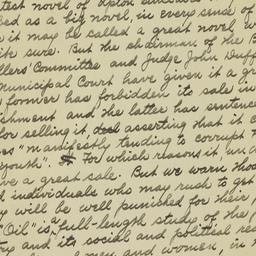 test novel of Upton
ed as a big novel, in every sense of
it may be called a great novel
ite sure. But the chairman of the B
llers' Committee and Judge John Duff
Municipal Court have given it a
former has forbidden its sale in
ishment and the latter has sentence
for selling it, asserting that it
es "manifestly tending to corrupt
youth". for which reason it, un
ve a great sale. But we warn those
d individuals who may rush to get
y will be well punished for their
"Oil" is a full-length study of the
try and its social and political
men and women, in